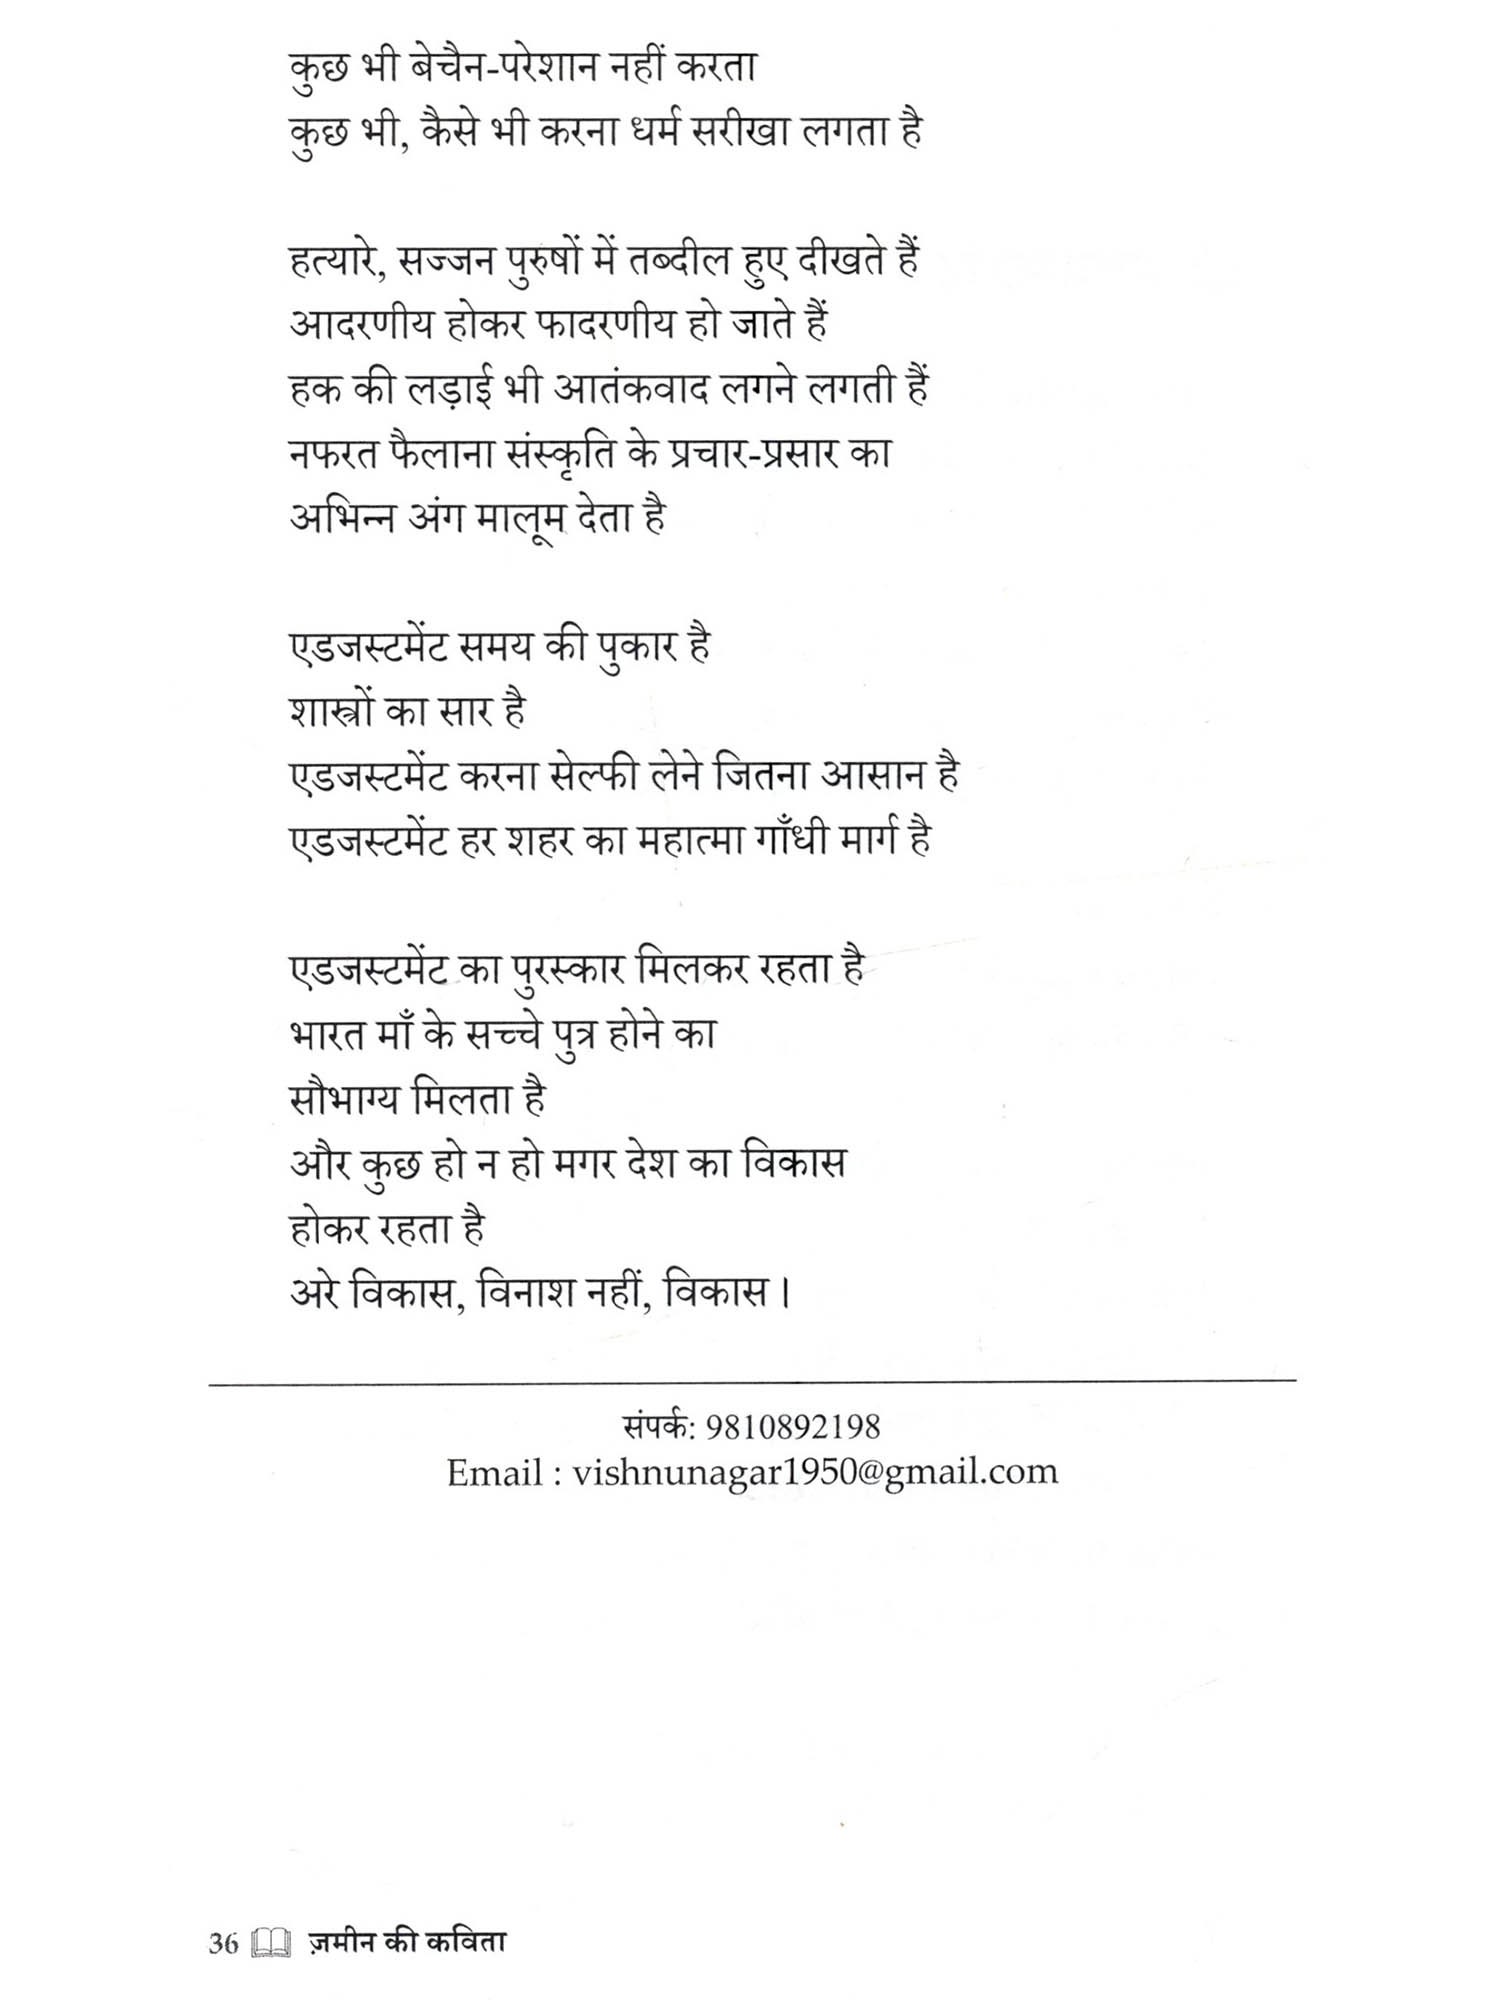 कुछ भी बेचैन-परेशान नहीं करता
कुछ भी, कैसे भी करना धर्म सरीखा लगता है
हत्यारे, सज्जन पुरुषों में तब्दील हुए दीखते हैं
आदरणीय होकर फादरणीय हो जाते हैं
हक की लड़ाई भी आतंकवाद लगने लगती हैं
नफरत फैलाना संस्कृति के प्रचार-प्रसार का
अभिन्न अंग मालूम देता है
एडजस्टमेंट समय की पुकार है
शास्त्रों का सार है
एडजस्टमेंट करना सेल्फी लेने जितना आसान है
एडजस्टमेंट हर शहर का महात्मा गाँधी मार्ग है
एडजस्टमेंट का पुरस्कार मिलकर रहता है
भारत माँ के सच्चे पुत्र होने का
सौभाग्य मिलता है
और कुछ हो न हो मगर देश का विकास
होकर रहता है
अरे विकास, विनाश नहीं, विकास।
संपर्क: 9810892198
Email : vishnunagar1950@gmail.com
36 ज़मीन की कविता